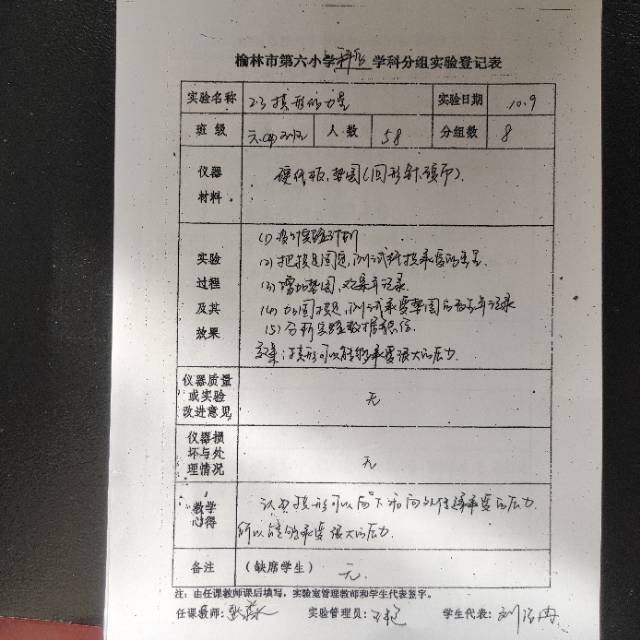 榆林市第六小学科学学科分组实验登记表
实验名称 2.3拱形的力量 实验日期 10.9
班级 六 人数 58 分组数 8
仪器材料 硬纸板、垫圈(回形针、硬币).
实验过程及其效果
(1) 设计实验计划
(2) 把拱足固定,测试纸拱承重
(3) 增加垫圈,观察并记录
(4) 测试承重垫圈的 并记录
(5) 分析实验数据
效果:拱形可以能够承受很大的压力.
仪器质量或实验改进意见 无
仪器损坏与处理情况 无
教学心得 认识拱形可以向下和向外传递承受的压力
所以能够承受很大的压力.
备注 (缺席学生) 无.
注:由任课教师课后填写,实验室管理教师和学生代表签字。
任课教师: 实验管理员: 学生代表: